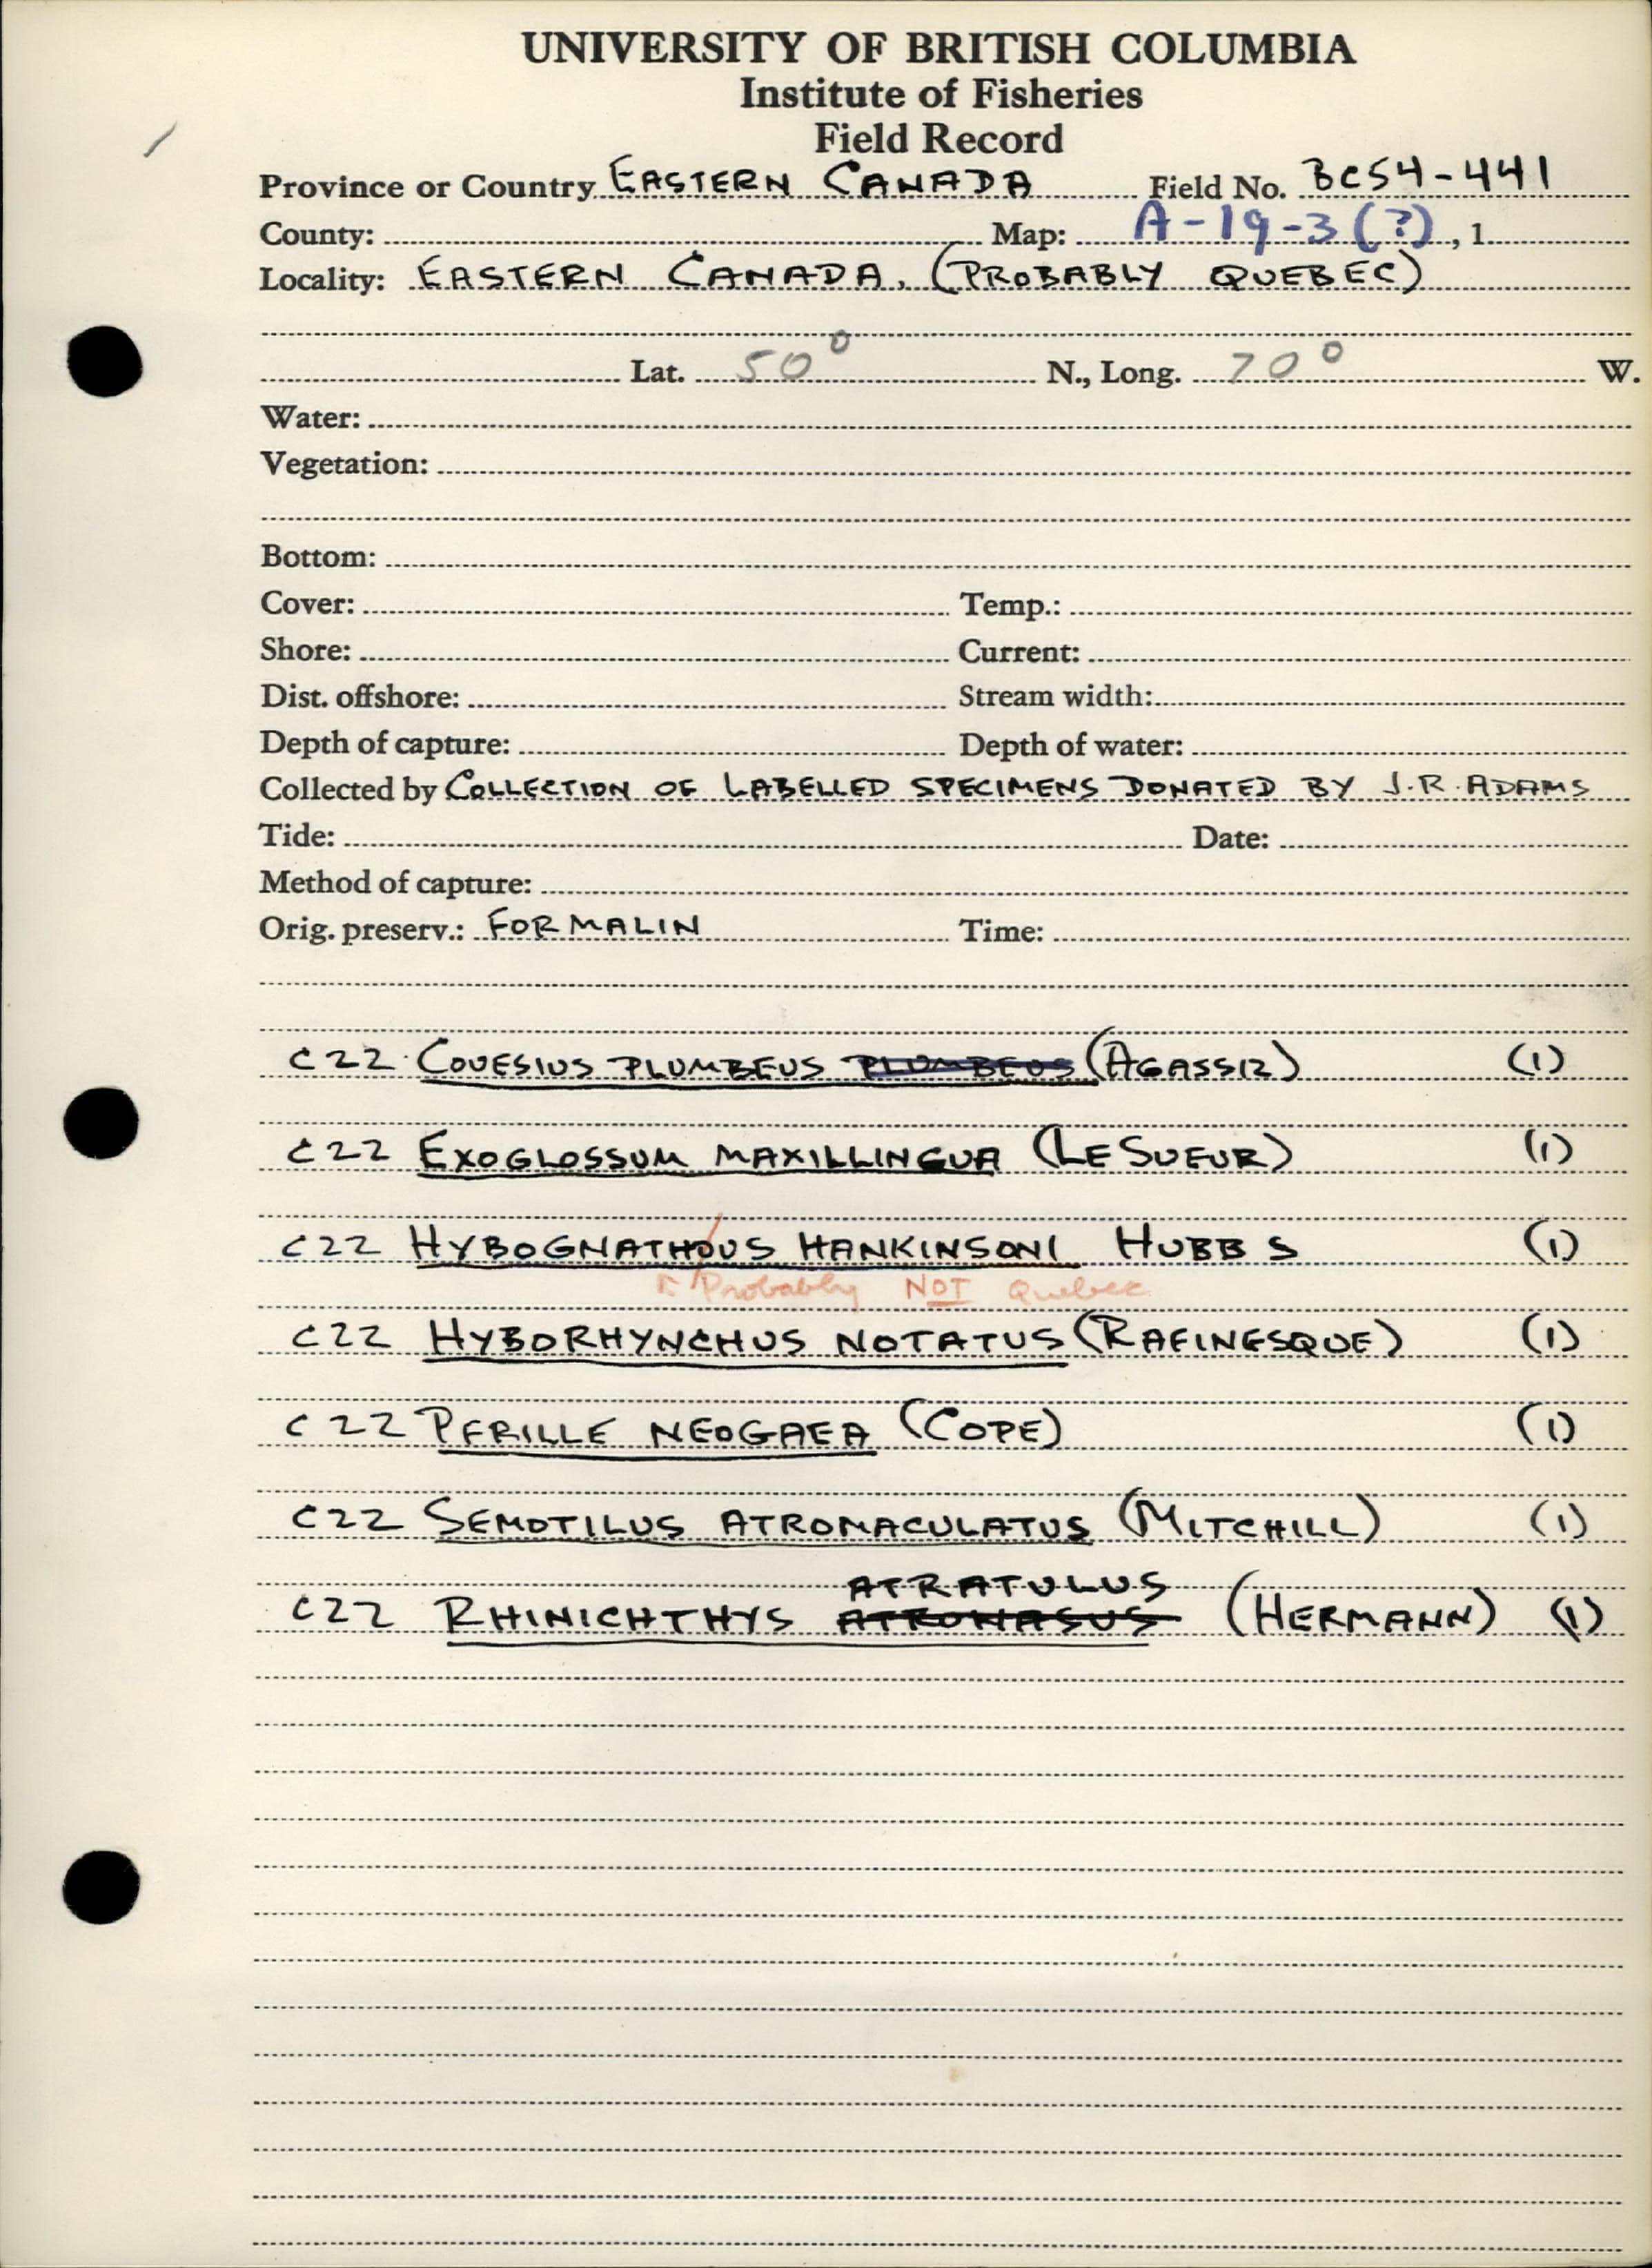 UNIVERSITY OF BRITISH COLUMBIA
Institute of Fisheries
Field Record
Province or Country EASTERN CANADA Field No. BC54-441
County: Map: A-19-3(?), 1
Locality: EASTERN CANADA. (PROBABLY QUEBEC)
Lat. 50° N., Long. 70° W.
Water:
Vegetation:
Bottom:
Cover: Temp.:
Shore: Current:
Dist. offshore: Stream width:
Depth of capture: Depth of water:
Collected by COLLECTION OF LABELLED SPECIMENS DONATED BY J.R. ADAMS
Tide: Date:
Method of capture:
Orig. preserv.: FORMALIN Time:
C22 COUESIUS PLUMBEUS PLUMBEUS (AGASSIZ) (1)
C22 EXOGLOSSUM MAXILLINGUA (LE SUEUR) (1)
C22 HYBOGNATHOUS HANKINSONI HUBBS (1)
↑ Probably NOT Quebec
C22 HYBORHYNCHUS NOTATUS (RAFINESQUE) (1)
C22 PFRILLE NEOGAEA (COPE) (1)
C22 SEMOTILUS ATROMACULATUS (MITCHILL) (1)
ATRATULUS
C22 RHINICHTHYS ATRONASUS (HERMANN) (1)